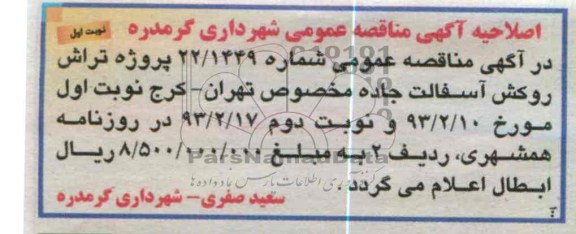 اصلاحیه آگهی مناقصه عمومی شهرداری گرمدره
نوبت اول
در آگهی مناقصه عمومی شماره ۲۲/۱۴۴۹ پروژه تراش
روکش آسفالت جاده مخصوص تهران - کرج نوبت اول
مورخ ۹۳/۲/۱۰ و نوبت دوم ۹۳/۲/۱۷ در روزنامه
همشهری، ردیف ۲ به مبلغ ۸/۵۰۰/۰۰۰/۰۰۰ ریال
ابطال اعلام می گردد.
سعید صفری - شهرداری گرمدره
ParsNamadData